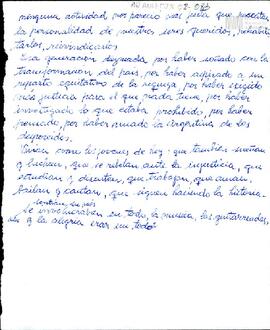 ninguna actividad por parecer más fuera que muestre
la personalidad de nuestros seres queridos, rehabili-
tarlos, reivindicarlos
Esa generación signada por haber soñado con la
transformación del país, por haber aspirado a un
reparto equitativo de la riqueza, por haber exigido
más justicia para el que nada tenía, por haber
investigado lo que estaba prohibido, por haber
pensado, por haber amado la Argentina de los
desposeídos.
Vivían como los jóvenes de hoy: que también sueñan
y luchan, que se rebelan ante la injusticia, que
estudian y discuten, que trabajan, que aman.
Bailan y cantan, que siguen haciendo la historia
Se involucraban en todo, la música, las guitarreadas,
y la alegría eran un todo